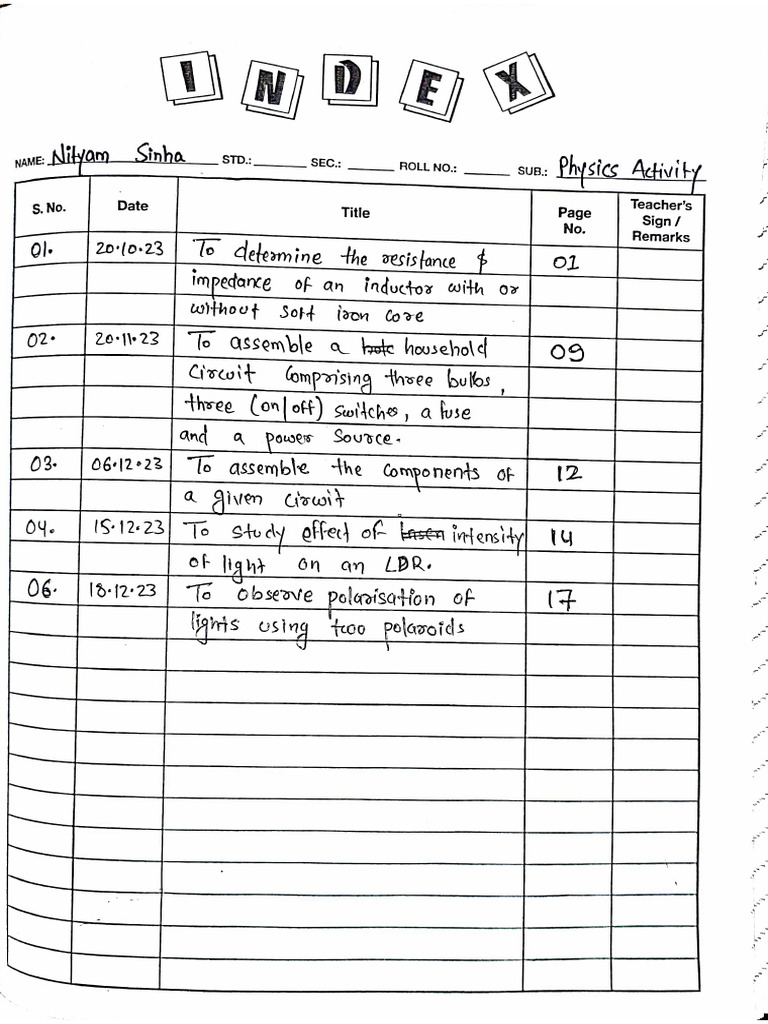 INDEX
NAME: Nityam Sinha STD.: SEC.: ROLL NO.: SUB.: Physics Activity
S. No. Date Title Page No. Teacher's Sign / Remarks
01. 20.10.23 To determine the resistance & 01
impedance of an inductor with or
without soft iron core
02. 20.11.23 To assemble a household 09
circuit comprising three bulbs,
three (on/off) switches, a fuse
and a power source.
03. 06.12.23 To assemble the components of 12
a given circuit
04. 15.12.23 To study effect of intensity 14
of light on an LDR.
06. 18.12.23 To observe polarisation of 17
lights using two polaroids